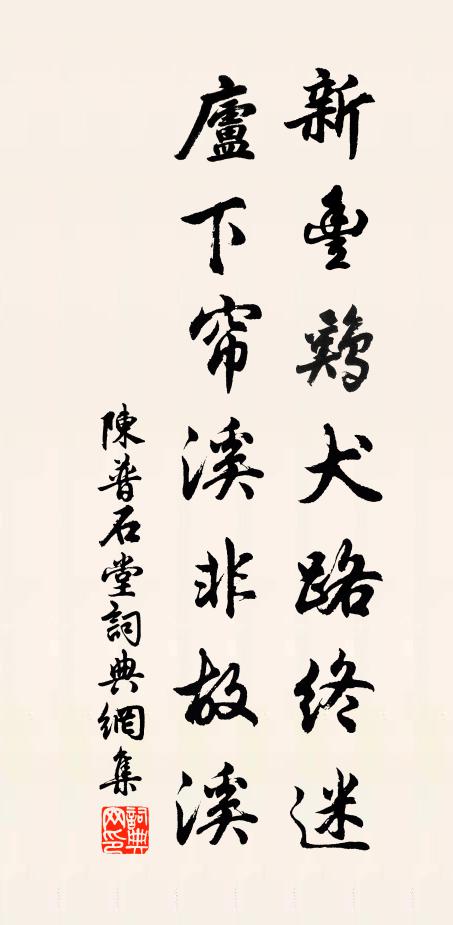 新豐鷄犬路終迷
廬下帘溪非故溪
陳普石堂詞典網集
詞典網印